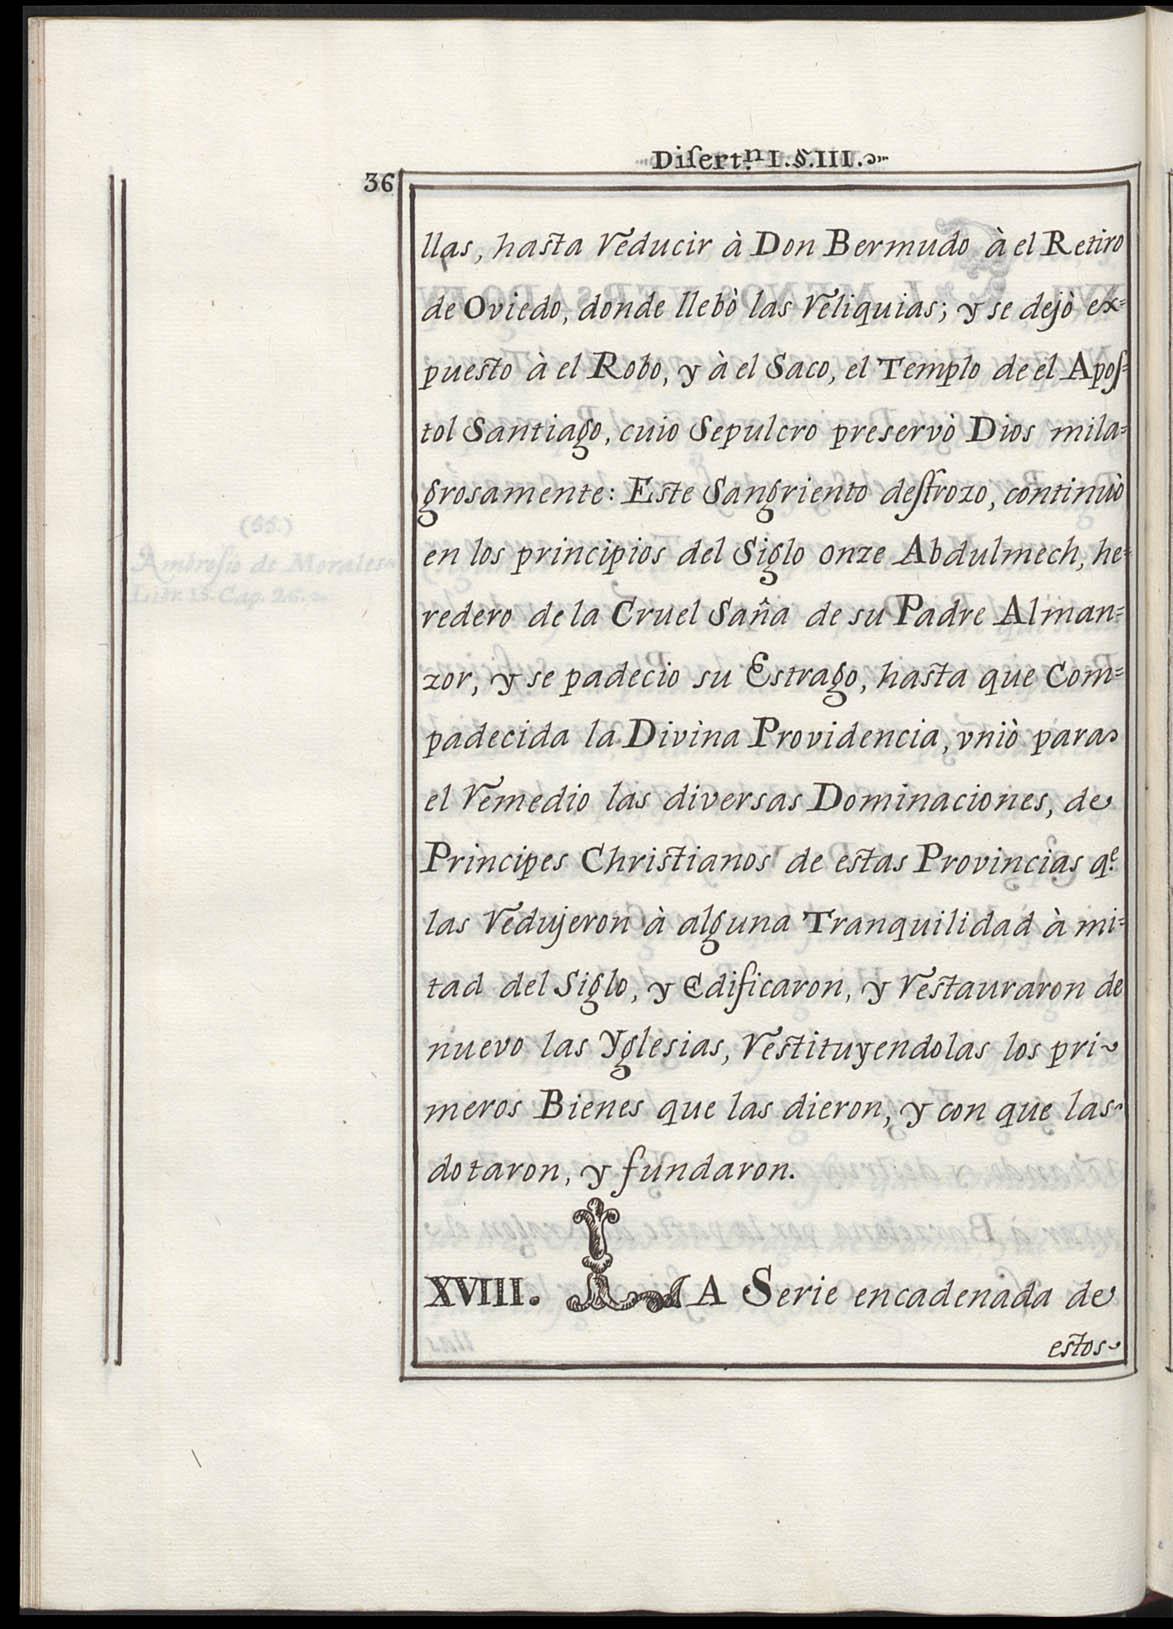 Disert.ⁿ I. §. III.
36
llas, hasta reducir à Don Bermudo à el Retiro
de Oviedo, donde llebò las reliquias; y se dejò ex=
puesto à el Robo, y à el Saco, el Templo de el Apos=
tol Santiago, cuio Sepulcro preservò Dios mila=
grosamente: Este Sangriento destrozo, continuò
en los principios del Siglo onze Abdulmech, he=
redero de la Cruel Saña de su Padre Alman=
zor, y se padecio su Estrago, hasta que Com=
padecida la Divina Providencia, vniò para
el remedio las diversas Dominaciones, de
Principes Christianos de estas Provincias q.ᵉ
las redujeron à alguna Tranquilidad à mi=
tad del Siglo, y Edificaron, y restauraron de
nuevo las Yglesias, restituyendolas los pri~
meros Bienes que las dieron, y con que las
dotaron, y fundaron.
XVIII. LA Serie encadenada de
estos